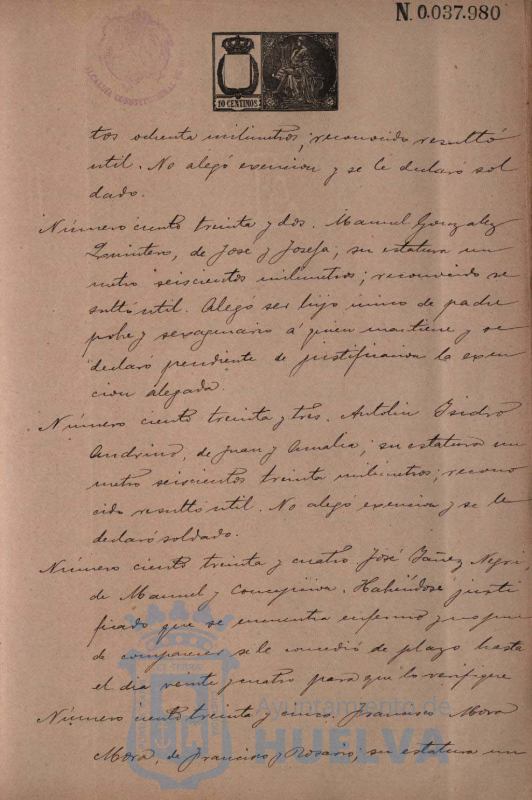 N. 0.037.980
ALCALDIA CONSTITUCIONAL
10 CENTIMOS
tos ochenta milimetros; reconocido resultó
util. No alegó exencion y se le declaró sol
dado.
Número ciento treinta y dos. Manuel Gonzalez
Quintero, de José y Josefa; su estatura un
metro seiscientos milimetros; reconocido re
sultó util. Alegó ser hijo único de padre
pobre y sexagenario á quien mantiene y se
declaró pendiente de justificacion la exen
cion alegada.
Número ciento treinta y tres. Antolin Isidro
Andrino, de Juan y Amalia; su estatura un
metro seiscientos treinta milimetros; recono
cido resultó util. No alegó exencion y se le
declaró soldado.
Número ciento treinta y cuatro José Yañez Negri,
de Manuel y Concepcion. Habiéndose justi
ficado que se encuentra enfermo y no puede
de comparecer se le concedió de plazo hasta
el dia veinte y cuatro para que lo verifique
Número ciento treinta y cinco. Francisco Mora
Mora, de Francisco y Rosario; su estatura un
Ayuntamiento de
HUELVA